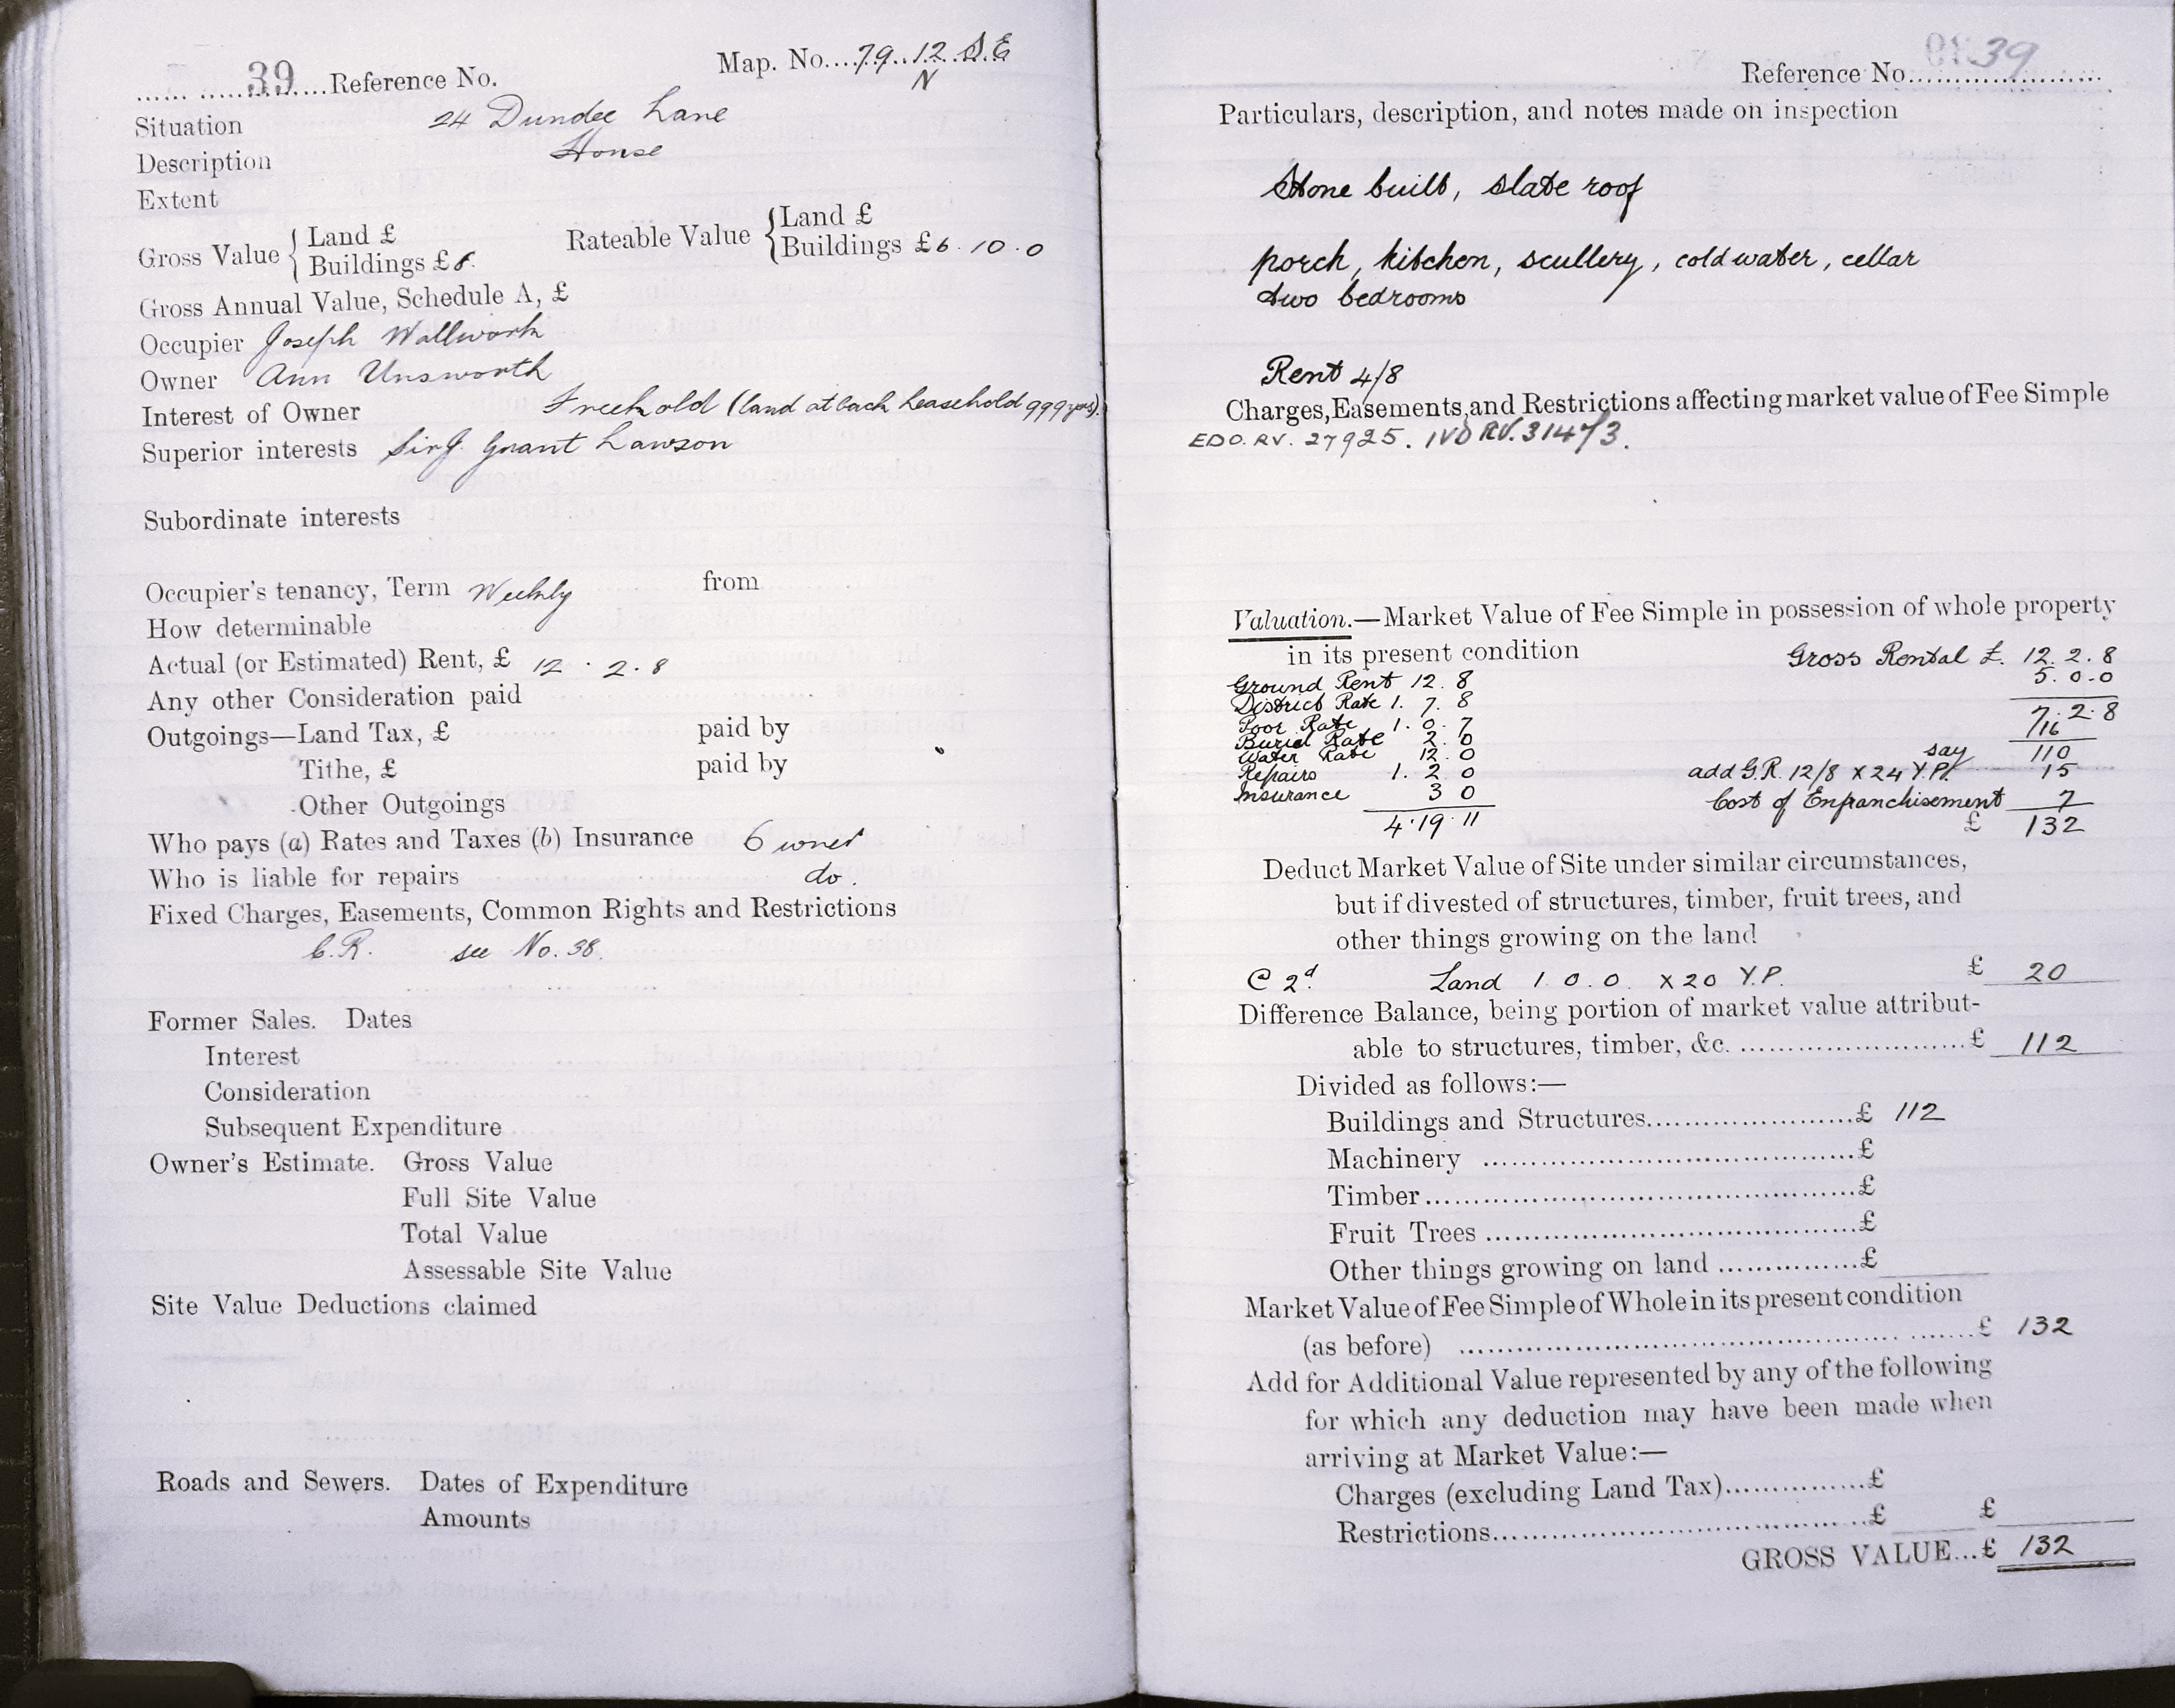 39 Reference No. Map. No. 79.12 S.E
N
Situation 24 Dundee Lane
Description House
Extent
Gross Value { Land £
Buildings £8. Rateable Value { Land £
Buildings £6.10.0
Gross Annual Value, Schedule A, £
Occupier Joseph Wallwork
Owner Ann Unsworth
Interest of Owner Freehold (land at back Leasehold 999 yrs).
Superior interests Sir J. Grant Lawson
Subordinate interests
Occupier's tenancy, Term Weekly from
How determinable
Actual (or Estimated) Rent, £ 12 . 2 . 8
Any other Consideration paid
Outgoings—Land Tax, £ paid by
Tithe, £ paid by
Other Outgoings
Who pays (a) Rates and Taxes (b) Insurance Owner
Who is liable for repairs do.
Fixed Charges, Easements, Common Rights and Restrictions
C.R. see No. 38.
Former Sales. Dates
Interest
Consideration
Subsequent Expenditure
Owner's Estimate. Gross Value
Full Site Value
Total Value
Assessable Site Value
Site Value Deductions claimed
Roads and Sewers. Dates of Expenditure
Amounts
Reference No. 39
Particulars, description, and notes made on inspection
Stone built, slate roof
porch, kitchen, scullery, cold water, cellar
two bedrooms
Rent 4/8
Charges, Easements, and Restrictions affecting market value of Fee Simple
EDO. RV. 27925. IVD RV. 31473.
Valuation.—Market Value of Fee Simple in possession of whole property
in its present condition Gross Rental £. 12.2.8
5.0.0
Ground Rent 12.8
District Rate 1.7.8 7.2.8
Poor Rate 1.0.7 /16
Burial Rate 2.0
Water Rate 12.0 say 110
Repairs 1.2.0 add G.R. 12/8 x 24 Y.P. 15
Insurance 3 0 Cost of Enfranchisement 7
4.19.11 £ 132
Deduct Market Value of Site under similar circumstances,
but if divested of structures, timber, fruit trees, and
other things growing on the land
@ 2d. Land 1.0.0. x 20 Y.P. £ 20
Difference Balance, being portion of market value attribut-
able to structures, timber, &c. £ 112
Divided as follows:—
Buildings and Structures £ 112
Machinery £
Timber £
Fruit Trees £
Other things growing on land £
Market Value of Fee Simple of Whole in its present condition
(as before) £ 132
Add for Additional Value represented by any of the following
for which any deduction may have been made when
arriving at Market Value:—
Charges (excluding Land Tax) £
Restrictions £ £
GROSS VALUE...£ 132